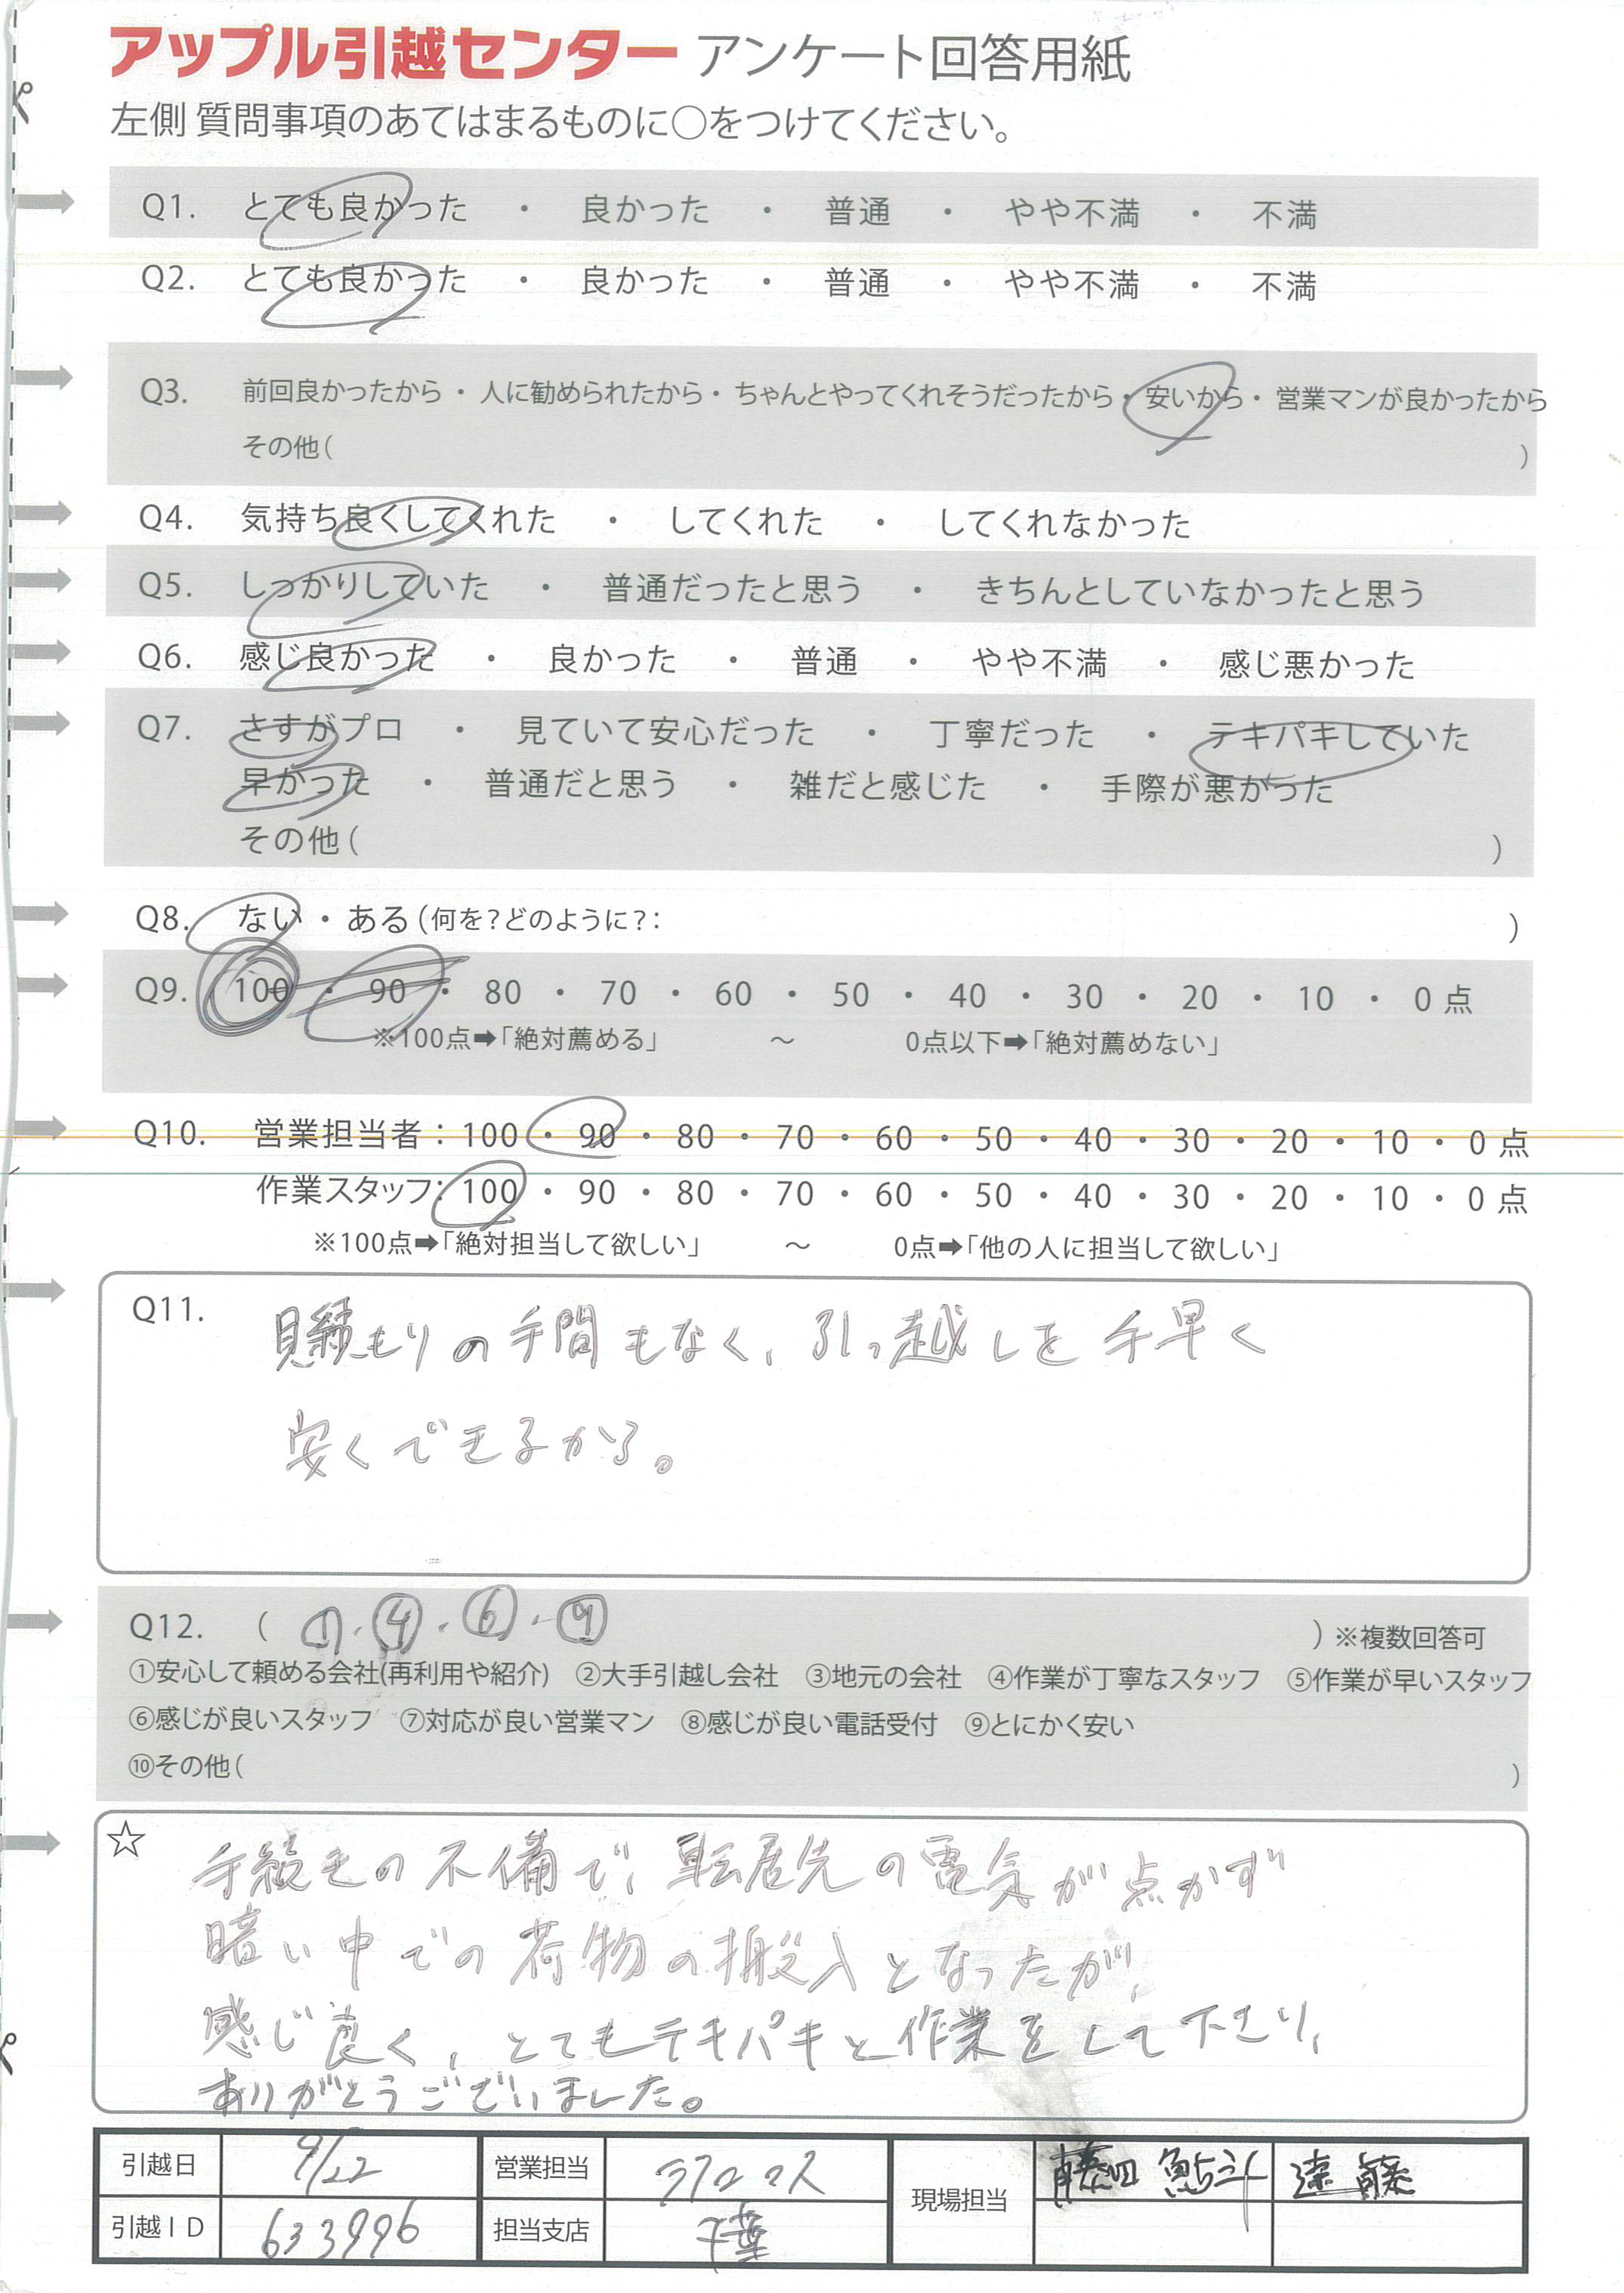 アップル引越センター アンケート回答用紙
左側 質問事項のあてはまるものに○をつけてください。
Q1. とても良かった ・ 良かった ・ 普通 ・ やや不満 ・ 不満
Q2. とても良かった ・ 良かった ・ 普通 ・ やや不満 ・ 不満
Q3. 前回良かったから・人に勧められたから・ちゃんとやってくれそうだったから・安いから・営業マンが良かったから
その他( )
Q4. 気持ち良くしてくれた ・ してくれた ・ してくれなかった
Q5. しっかりしていた ・ 普通だったと思う ・ きちんとしていなかったと思う
Q6. 感じ良かった ・ 良かった ・ 普通 ・ やや不満 ・ 感じ悪かった
Q7. さすがプロ ・ 見ていて安心だった ・ 丁寧だった ・ テキパキしていた
早かった ・ 普通だと思う ・ 雑だと感じた ・ 手際が悪かった
その他( )
Q8. ない・ある(何を?どのように?: )
Q9. 100 ・ 90 ・ 80 ・ 70 ・ 60 ・ 50 ・ 40 ・ 30 ・ 20 ・ 10 ・ 0点
※100点➡「絶対薦める」 ～ 0点以下➡「絶対薦めない」
Q10. 営業担当者：100 ・ 90 ・ 80 ・ 70 ・ 60 ・ 50 ・ 40 ・ 30 ・ 20 ・ 10 ・ 0点
作業スタッフ：100 ・ 90 ・ 80 ・ 70 ・ 60 ・ 50 ・ 40 ・ 30 ・ 20 ・ 10 ・ 0点
※100点➡「絶対担当して欲しい」 ～ 0点➡「他の人に担当して欲しい」
Q11. 見積もりの手間もなく、引っ越しを手早く
安くできるから。
Q12. ( ①・④・⑥・⑨ )※複数回答可
①安心して頼める会社(再利用や紹介) ②大手引越し会社 ③地元の会社 ④作業が丁寧なスタッフ ⑤作業が早いスタッフ
⑥感じが良いスタッフ ⑦対応が良い営業マン ⑧感じが良い電話受付 ⑨とにかく安い
⑩その他( )
☆ 手続きの不備で、転居先の電気が点かず
暗い中での荷物の搬入となったが、
感じ良く、とてもテキパキと作業をして下さり、
ありがとうございました。
引越日 9/22 営業担当 現場担当 藤田 鮎斗 遠藤
引越ID 633996 担当支店 千葉